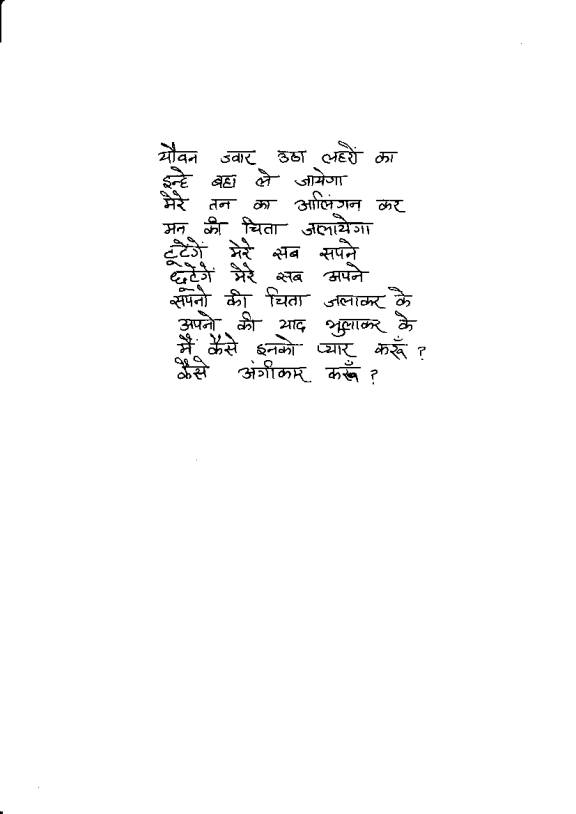 यौवन ज्वार उठा लहरों का
इन्हे बहा ले जायेगा
मेरे तन का आलिंगन कर
मन की चिता जलायेगा
टूटेगें मेरे सब सपने
छूटेगें मेरे सब अपने
सपनो की चिता जलाकर के
अपनो की याद भुलाकर के
मैं कैसे इनको प्यार करूँ ?
कैसे अंगीकार करूँ ?